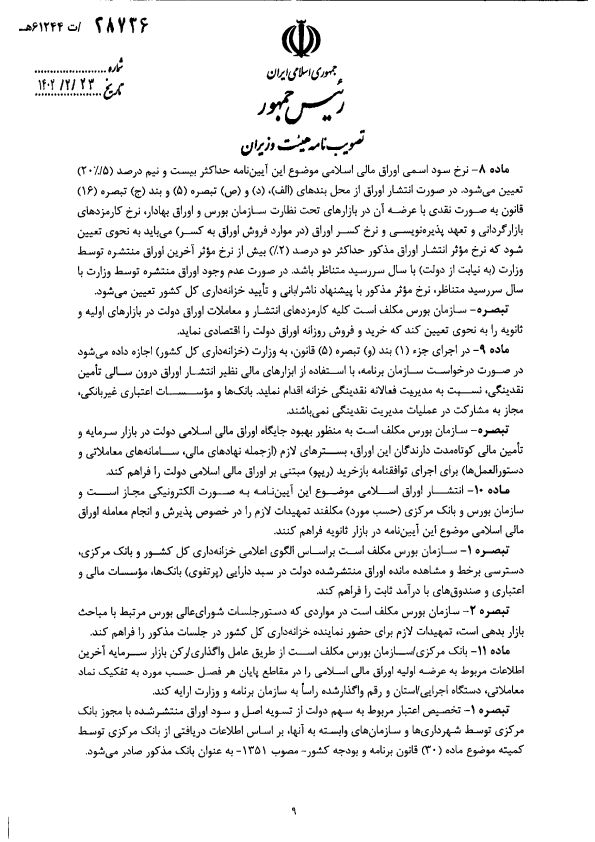 ۲۸۷۲۶ /ت ۶۱۲۴۴هـ
جمهوری اسلامی ایران
رئیس جمهور
تصویب نامه هیئت وزیران
شماره
تاریخ ۱۴۰۲/۲/۲۳
ماده ۸- نرخ سود اسمی اوراق مالی اسلامی موضوع این آیین‌نامه حداکثر بیست و نیم درصد (۲۰/۵٪)
تعیین می‌شود. در صورت انتشار اوراق از محل بندهای (الف)، (د) و (ص) تبصره (۵) و بند (ج) تبصره (۱۶)
قانون به صورت نقدی با عرضه آن در بازارهای تحت نظارت سازمان بورس و اوراق بهادار، نرخ کارمزدهای
بازارگردانی و تعهد پذیره‌نویسی و نرخ کسر اوراق (در موارد فروش اوراق به کسر) می‌باید به نحوی تعیین
شود که نرخ مؤثر انتشار اوراق مذکور حداکثر دو درصد (۲٪) بیش از نرخ مؤثر آخرین اوراق منتشره توسط
وزارت (به نیابت از دولت) با سال سررسید متناظر باشد. در صورت عدم وجود اوراق منتشره توسط وزارت با
سال سررسید متناظر، نرخ مؤثر مذکور با پیشنهاد ناشر/بانی و تأیید خزانه‌داری کل کشور تعیین می‌شود.
تبصره- سازمان بورس مکلف است کلیه کارمزدهای انتشار و معاملات اوراق دولت در بازارهای اولیه و
ثانویه را به نحوی تعیین کند که خرید و فروش روزانه اوراق دولت را اقتصادی نماید.
ماده ۹- در اجرای جزء (۱) بند (و) تبصره (۵) قانون، به وزارت (خزانه‌داری کل کشور) اجازه داده می‌شود
در صورت درخواست سازمان برنامه، با استفاده از ابزارهای مالی نظیر انتشار اوراق درون سالی تأمین
نقدینگی، نسبت به مدیریت فعالانه نقدینگی خزانه اقدام نماید. بانک‌ها و مؤسسات اعتباری غیربانکی،
مجاز به مشارکت در عملیات مدیریت نقدینگی نمی‌باشند.
تبصره- سازمان بورس مکلف است به منظور بهبود جایگاه اوراق مالی اسلامی دولت در بازار سرمایه و
تأمین مالی کوتاه‌مدت دارندگان این اوراق، بسترهای لازم (ازجمله نهادهای مالی، سامانه‌های معاملاتی و
دستورالعمل‌ها) برای اجرای توافقنامه بازخرید (ریپو) مبتنی بر اوراق مالی اسلامی دولت را فراهم کند.
ماده ۱۰- انتشار اوراق اسلامی موضوع این آیین‌نامه به صورت الکترونیکی مجاز است و
سازمان بورس و بانک مرکزی (حسب مورد) مکلفند تمهیدات لازم را در خصوص پذیرش و انجام معامله اوراق
مالی اسلامی موضوع این آیین‌نامه در بازار ثانویه فراهم کنند.
تبصره ۱- سازمان بورس مکلف است براساس الگوی اعلامی خزانه‌داری کل کشور و بانک مرکزی،
دسترسی برخط و مشاهده مانده اوراق منتشرشده دولت در سبد دارایی (پرتفوی) بانک‌ها، مؤسسات مالی و
اعتباری و صندوق‌های با درآمد ثابت را فراهم کند.
تبصره ۲- سازمان بورس مکلف است در مواردی که دستورجلسات شورای‌عالی بورس مرتبط با مباحث
بازار بدهی است، تمهیدات لازم برای حضور نماینده خزانه‌داری کل کشور در جلسات مذکور را فراهم کند.
ماده ۱۱- بانک مرکزی/سازمان بورس مکلف است از طریق عامل واگذاری/رکن بازار سرمایه آخرین
اطلاعات مربوط به عرضه اولیه اوراق مالی اسلامی را در مقاطع پایان هر فصل حسب مورد به تفکیک نماد
معاملاتی، دستگاه اجرایی/استان و رقم واگذارشده راساً به سازمان برنامه و وزارت ارایه کند.
تبصره ۱- تخصیص اعتبار مربوط به سهم دولت از تسویه اصل و سود اوراق منتشرشده با مجوز بانک
مرکزی توسط شهرداری‌ها و سازمان‌های وابسته به آنها، بر اساس اطلاعات دریافتی از بانک مرکزی توسط
کمیته موضوع ماده (۳۰) قانون برنامه و بودجه کشور- مصوب ۱۳۵۱- به عنوان بانک مذکور صادر می‌شود.
۹